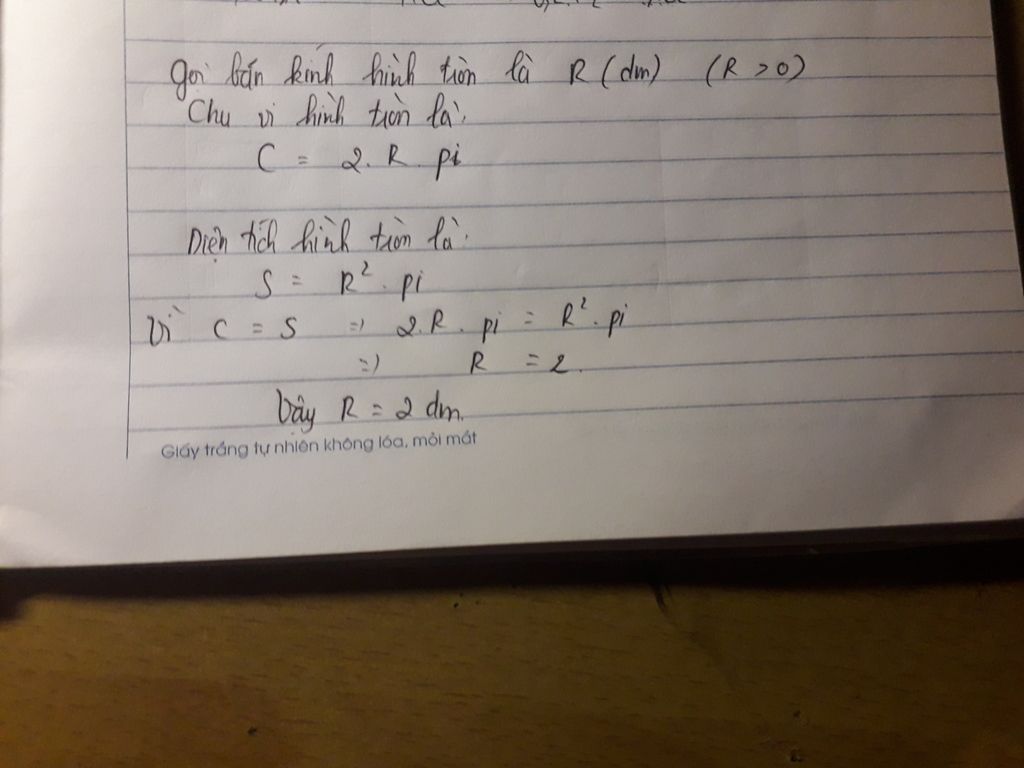 gọi bán kính hình tròn là R (dm) (R > 0)
Chu vi hình tròn là:
C = 2. R. pi
Diện tích hình tròn là:
S = R². pi
Vì C = S => 2.R. pi = R². pi
=> R = 2.
Vậy R = 2 dm.
Giấy trắng tự nhiên không lóa, mỏi mắt